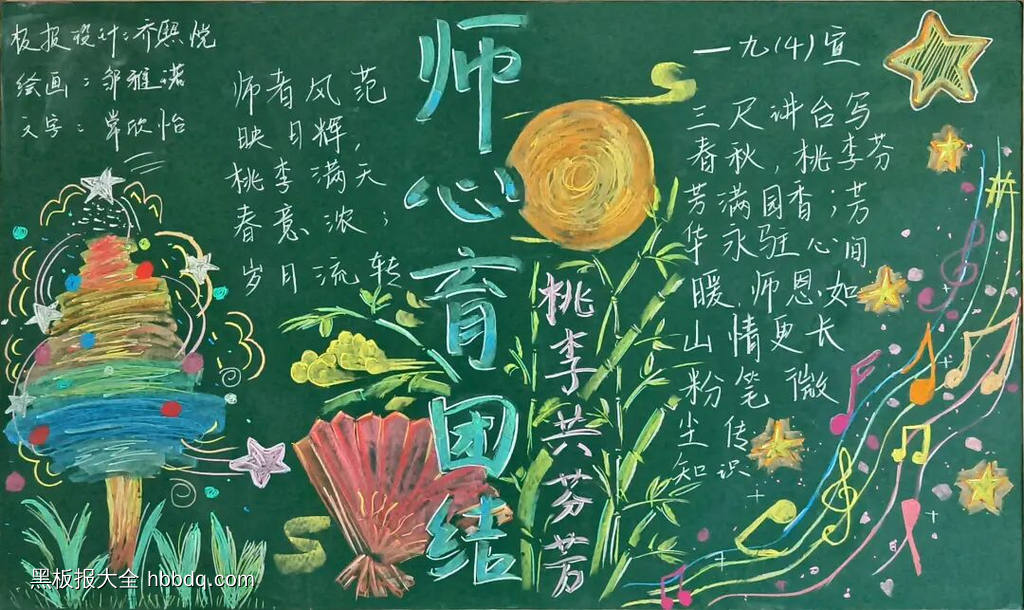 板报设计:乔熙悦
绘画:邹雅诺
文字:岸欣怡
师者风范
映日辉,
桃李满天
春意浓;
岁月流转
师心育团结
桃李共芬芳
一九(4)宣
三尺讲台写
春秋,桃李芬
芳满园香;芳
华永驻心间
暖师恩如
山情更长
粉笔微
尘传
知识
黑板报大全 hbbdq.com